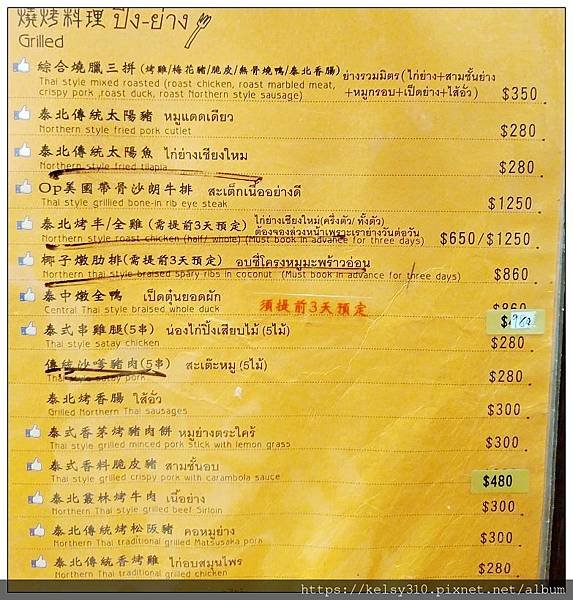 燒烤料理 ปิ้ง-ย่าง
Grilled
綜合燒臘三拼(烤雞/梅花豬/脆皮/無骨燒鴨/泰北香腸) ย่างรวมมิตร(ไก่ย่าง+สามชั้นย่าง
Thai style mixed roasted (roast chicken, roast marbled meat, +หมูกรอบ+เป็ดย่าง+ไส้อั่ว)
crispy pork ,roast duck, roast Northern style sausage) $350
泰北傳統太陽豬 หมูแดดเดียว
Northern style fried pork cutlet $280
泰北傳統太陽魚 ไก่ย่างเชียงใหม่
Northern style fried tilapia $280
Op美國帶骨沙朗牛排 สะเต็กเนื้ออย่างดี
Thai style grillied bone-in rib eye steak $1250
泰北烤半/全雞(需提前3天預定) ไก่ย่างเชียงใหม่(ครึ่งตัว/ ทั้งตัว)
ต้องจองล่วงหน้าเพราะเราย่างวันต่อวัน
Northern style roast chicken (half/ whole) (Must book in advance for three days) $650/$1250
椰子燉肋排(需提前3天預定) อบซี่โครงหมูมะพร้าวอ่อน
Northern thai style braised spary ribs in coconut (Must book in advance for three days) $860
泰中燉全鴨 เป็ดตุ๋นยอดผัก 須提前3天預定
Central Thai style braised whole duck $860
泰式串雞腿(5串) น่องไก่ปิ้งเสียบไม้ (5ไม้)
Thai style satay chicken $280
傳統沙嗲豬肉(5串) สะเต๊ะหมู (5ไม้)
Thai style satay pork $280
泰北烤香腸 ไส้อั่ว
Grilled Northern Thai sausages $300
泰式香茅烤豬肉餅 หมูย่างตระไคร้
Thai style grilled minced pork stick with lemon grass $300
泰式香料脆皮豬 สามชั้นอบ
Thai style grilled crispy pork with carambola sauce $480
泰北叢林烤牛肉 เนื้อย่าง
Northern Thai style grilled beef Sirloin $300
泰北傳統烤松阪豬 คอหมูย่าง
Northern Thai traditional grilled Matsusaka pork $300
泰北傳統香烤雞 ไก่อบสมุนไพร
Northern Thai traditional grilled chicken $280
https://kelsy310.pixnet.net/album